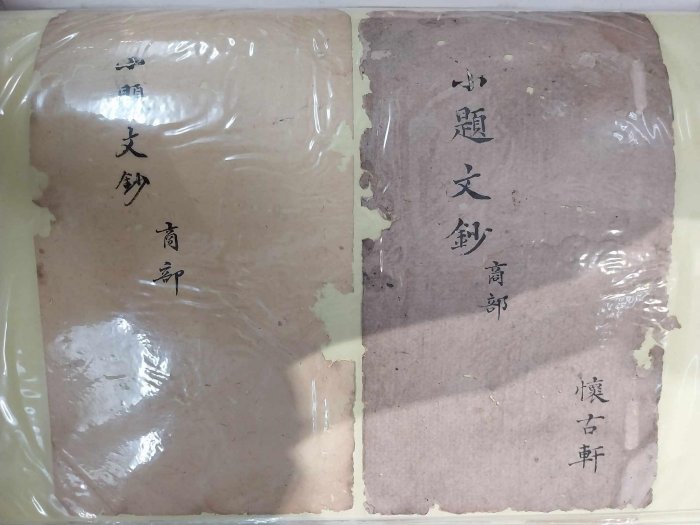 小題文鈔
商部
小題文鈔
商部
懷古軒